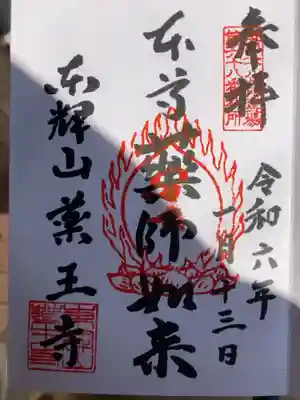 奉拝
令和六年
一月十三日
本尊薬師如来
東輝山薬王寺